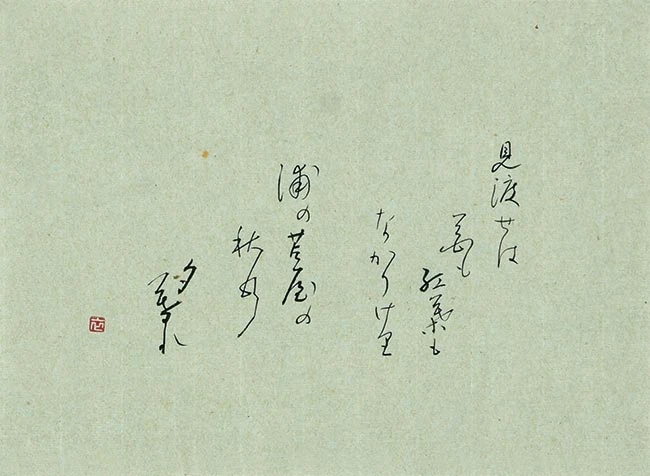 見渡せは
花も
紅葉も
なかりけり
浦の苫屋の
秋の
夕暮れ